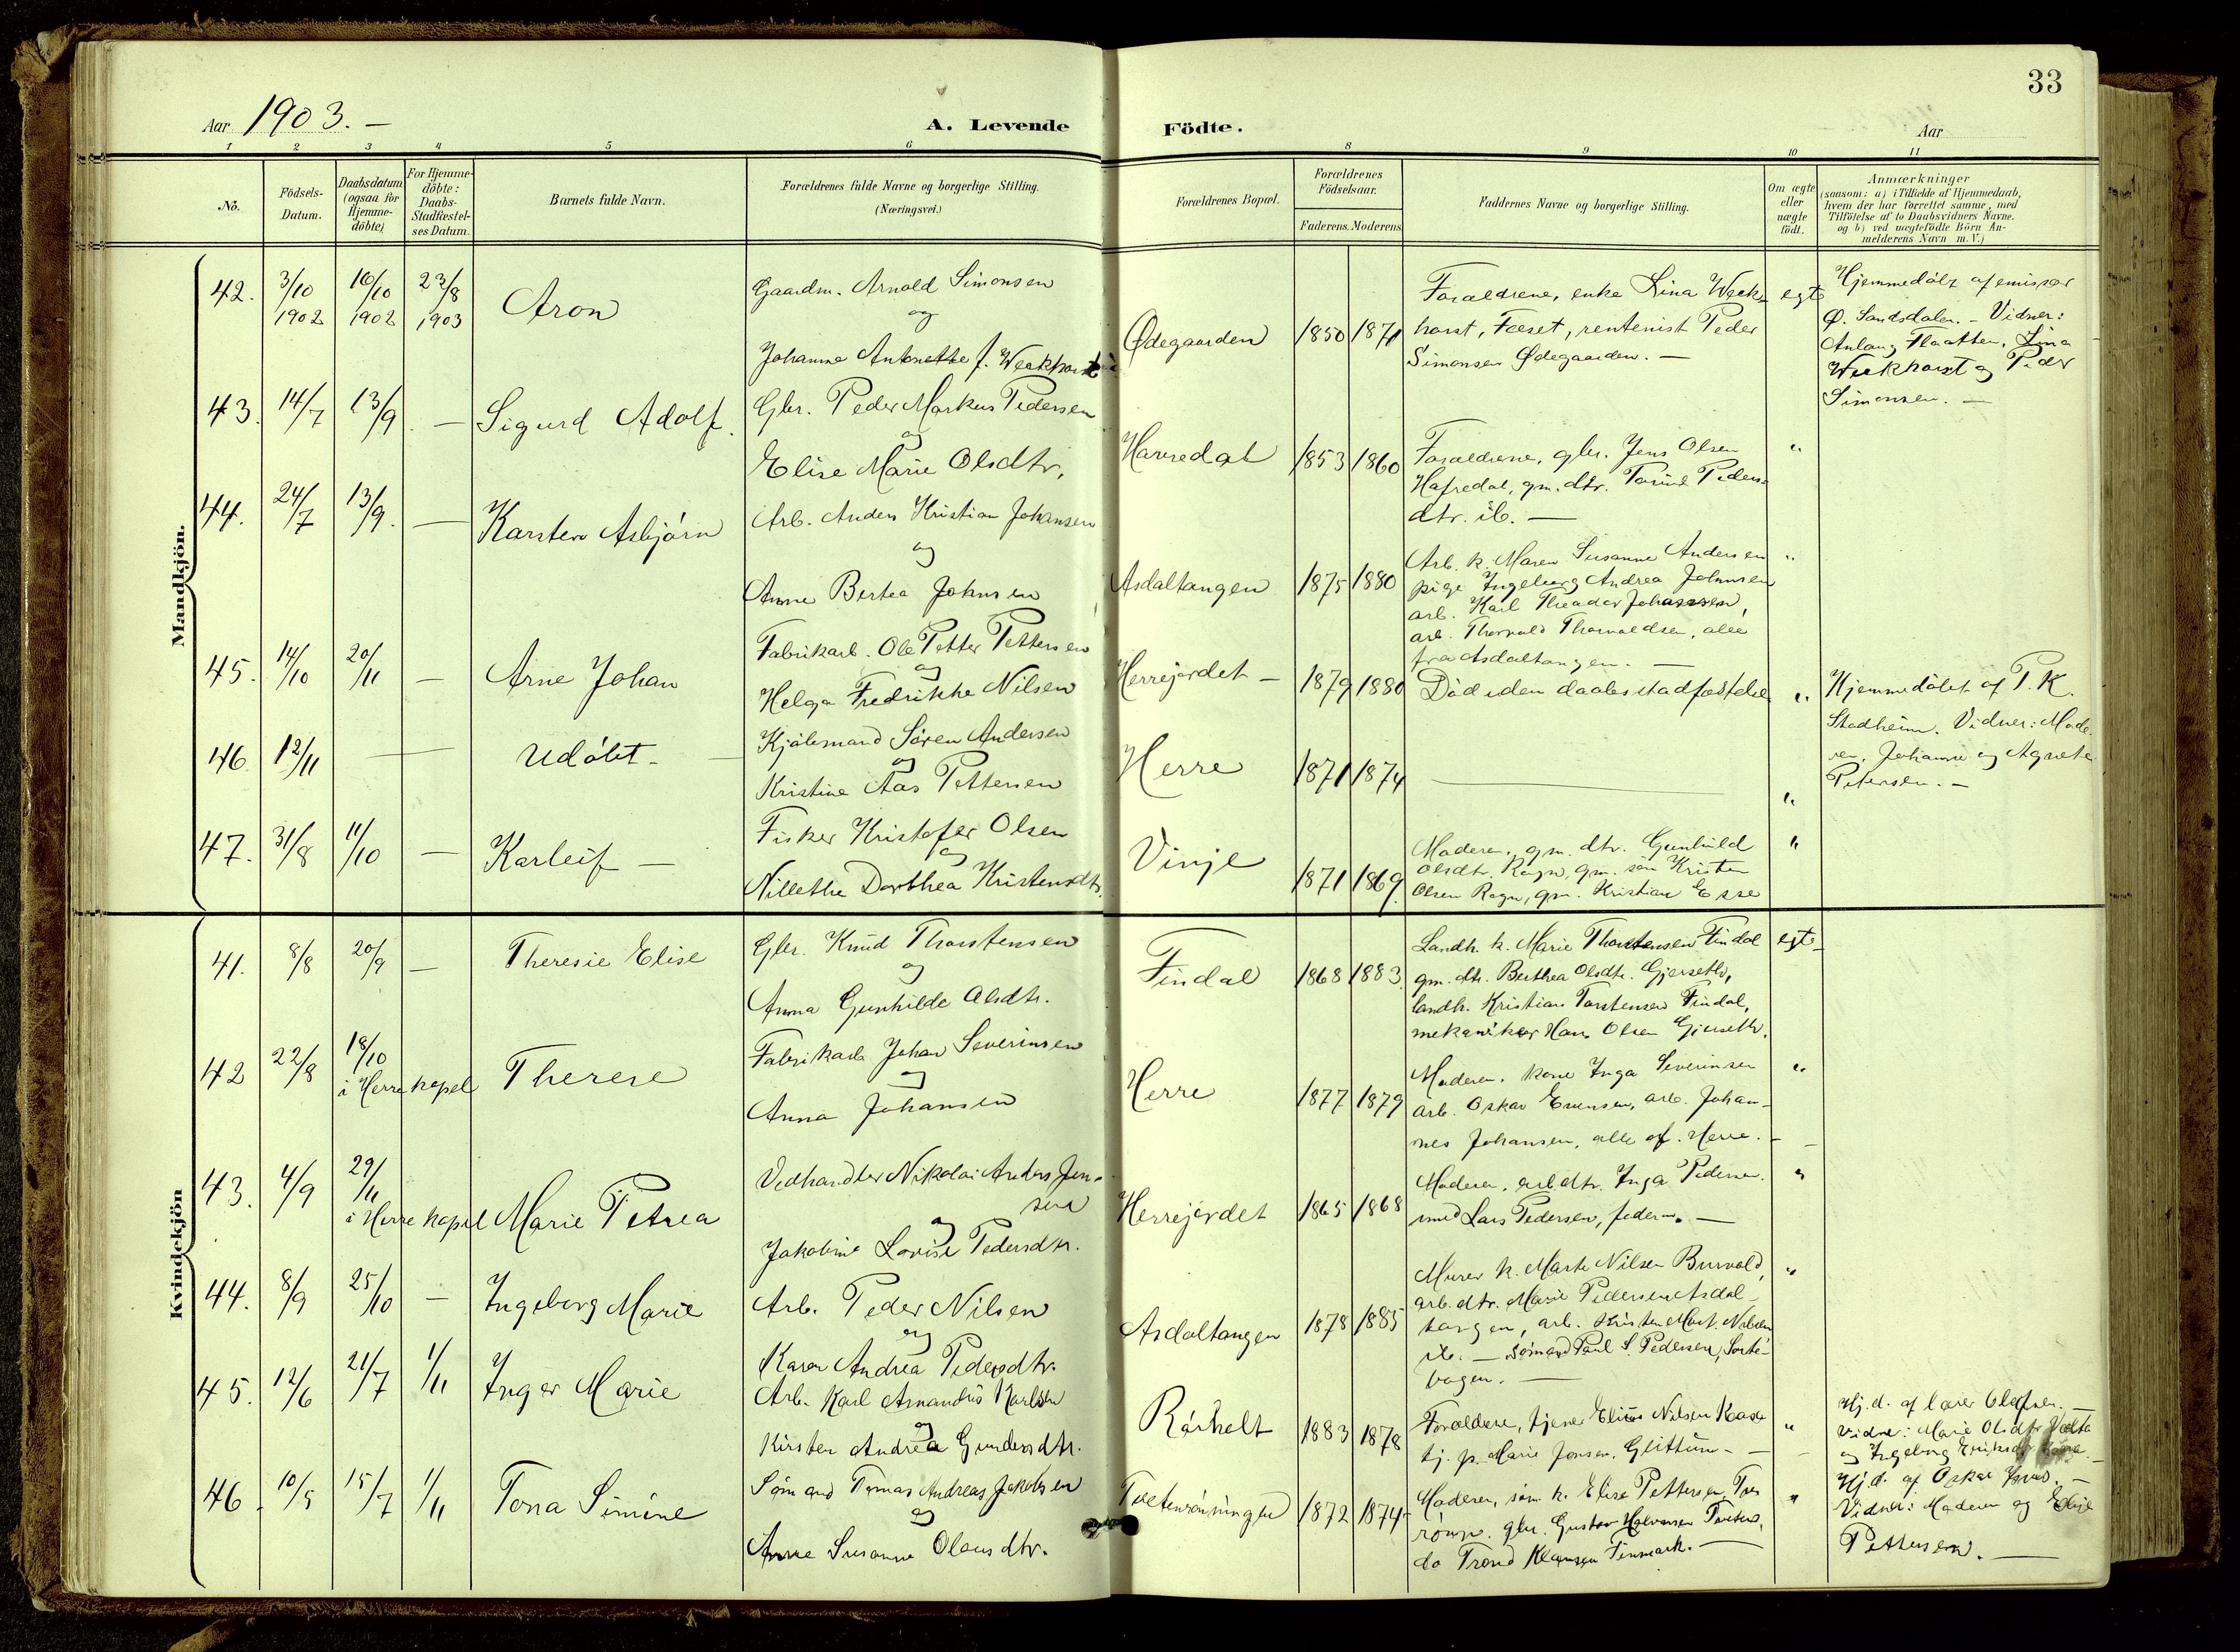 33
Aar 1903. —
A. Levende Födte.
Aar
1 2 3 4 5 6 8 9 10 11
No.
Födsels-Datum.
Daabsdatum (ogsaa for Hjemme-döbte)
For Hjemme-döbte: Daabs-Stadfæstel-ses Datum.
Barnets fulde Navn.
Forældrenes fulde Navne og borgerlige Stilling.
(Næringsvei.)
Forældrenes Bopæl.
Forældrenes Födselsaar.
Faderens. Moderens
Faddernes Navne og borgerlige Stilling.
Om ægte eller uægte födt.
Anmærkninger
(saasom: a) i Tilfælde af Hjemmedaab,
hvem der har forrettet samme, med
Tilföielse af to Daabsvidners Navne.
og b) ved uægtefödte Börn An-
melderens Navn m. V.)
Mandkjön.
42. 3/10 1902 16/10 1902 23/8 1903 Aron
Gaardm. Arnold Simonsen
og
Johanne Antonette f. Weekhorst
Ødegaarden 1850 1871
Forældrene, enke Lina Week-
horst, Fæset, rentenist Peder
Simonsen Ødegaarden. —
egte
Hjemmedöbt af emissær
Ø. Sandsdalen. — Vidner:
Flaatten, Lina
Weekhorst og Peder
Simonsen. —
43. 14/7 13/9 — Sigurd Adolf.
Gbr. Peder Markus Pedersen
og
Elise Marie Olsdtr,
Havredal 1853 1860
Forældrene, gbr. Jens Olsen
Hafredal, gm. dtr. Torine Peders-
dtr. ib. —
"
44. 24/7 13/9. — Karsten Asbjörn
Arb. Anders Kristian Johansen
og
Anne Bertea Johnsen
Asdaltangen 1875 1880
Arb. k. Maren Susanne Andersen
pige Ingeborg Andrea Johnsen
arb. Karl Theodor Johansen,
arb. Thorvald Thorvaldsen, alle
fra Asdaltangen. —
"
45. 14/10 20/11 — Arne Johan
Fabrikarb. Ole Petter Pettersen
og
Helga Fredrikke Nilsen
Herrejordet — 1879 1880
Död uden daabsstadfæstelse
"
Hjemmedöbt af P. K.
Stadheim. Vidner: Mode-
ren, Johanne og Agnete
Petersen. —
46. 12/11 — Udöbt —
Kjöbmand Sören Andersen
og
Kristine Aas Pettersen
Herre 1871 1874 —
"
47. 31/8 11/10 — Karleif —
Fisker Kristofer Olsen
og
Nillethe Dorthea Kristensdtr.
Vinje 1871 1869.
Moderen, gm. dtr. Gunhild
Olsdtr. Rogn, gm. sön Kristen
Olsen Rogn, gm. Kristian Esse
"
Kvindekjön
41. 8/8 20/9 — Theresie Elise
Gbr. Knud Thorstensen
og
Anna Gunhilde Olsdtr.
Findal 1868 1883
Landh. k. Marie Thorstensen Findal
gm. dtr. Berthea Olsdtr. Gjerseth,
landh. Kristian Torstensen Findal,
mekaniker Hans Olsen Gjerseth.
egte
42 22/8 18/10 i Herre kapel Therese
Fabrikarb Johan Severinsen
og
Anna Johansen
Herre 1877 1879
Moderen, kone Inga Severinsen
arb. Oskar Evensen, arb. Johan-
nes Johansen, alle af Herre. —
"
43. 4/9 29/11 i Herre kapel Marie Petrea
Vedhandler Nikolai Anders Jen-
sen
og
Jakobine Lovise Pedersdtr.
Herrejordet 1865 1868
Moderen, arb dtr. Inga Pedersen.
smed Lars Pedersen, —
"
44. 8/9 25/10 — Ingeborg Marie
Arb. Peder Nilsen
og
Karen Andrea Pedersdtr.
Asdaltangen 1878 1885
Murer k. Marte Nilsen Burvold,
arb. dtr. Marie Pedersen Asdal-
tangen, arb. Kristen Mart. Nilsen
ib. — Sömand Paul S. Pedersen, Sorte-
bogen. —
"
45. 12/6 21/7 1/11 Inger Marie
Arb. Karl Amandus Karlsen
og
Kirsten Andrea Gundersdtr.
Rörholt 1883 1878
Forældrene, tjener Elias Nilsen Kaasa
tj. p. Marie Jonsen, Glittum —
"
Hj. d. af lærer Olefsen. —
Vidner: Marie Olsdtr
og Ingeborg Eriksdtr
46. 10/5 15/7 1/11 Tora Simine
Sömand Tomas Andreas Jakobsen
og
Anne Susanne Olausdtr.
Tvetenröningen 1872 1874
Moderen, söm. k. Elise Pettersen, Tve
röning. gbr. Gustav Halvorsen Tveten,
do Trond Klausen Finmark. —
"
Hj. d. af Oskar —
Vidner: Moderen og Elise
Pettersen. —